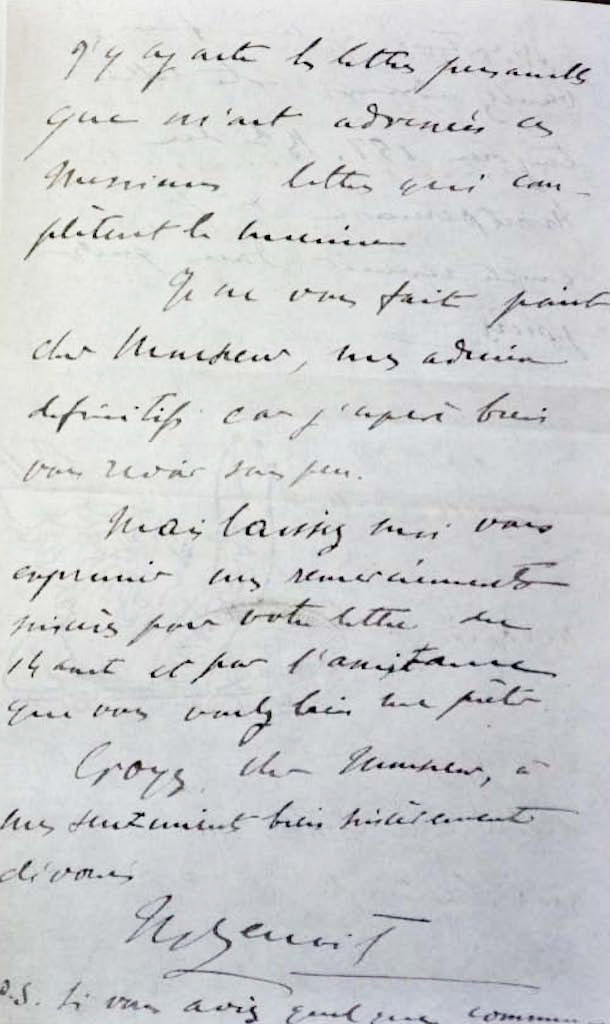 j'y ajoute les lettres personnelles
que m'ont adressées ces
Messieurs lettres qui com-
plètent la mienne
Je ne vous fait point
cher Monsieur, mes adieux
définitifs car j'espère bien
vous revoir sous peu.
Mais laissez moi vous
exprimer mes remerciements
sincères pour votre lettre du
14 aout et pour l'assistance
que vous voulez bien me prêter
Croyez, cher Monsieur, à
mes sentiments bien sincèrement
dévoués
Benoit
P.S. Si vous avez quelque commu